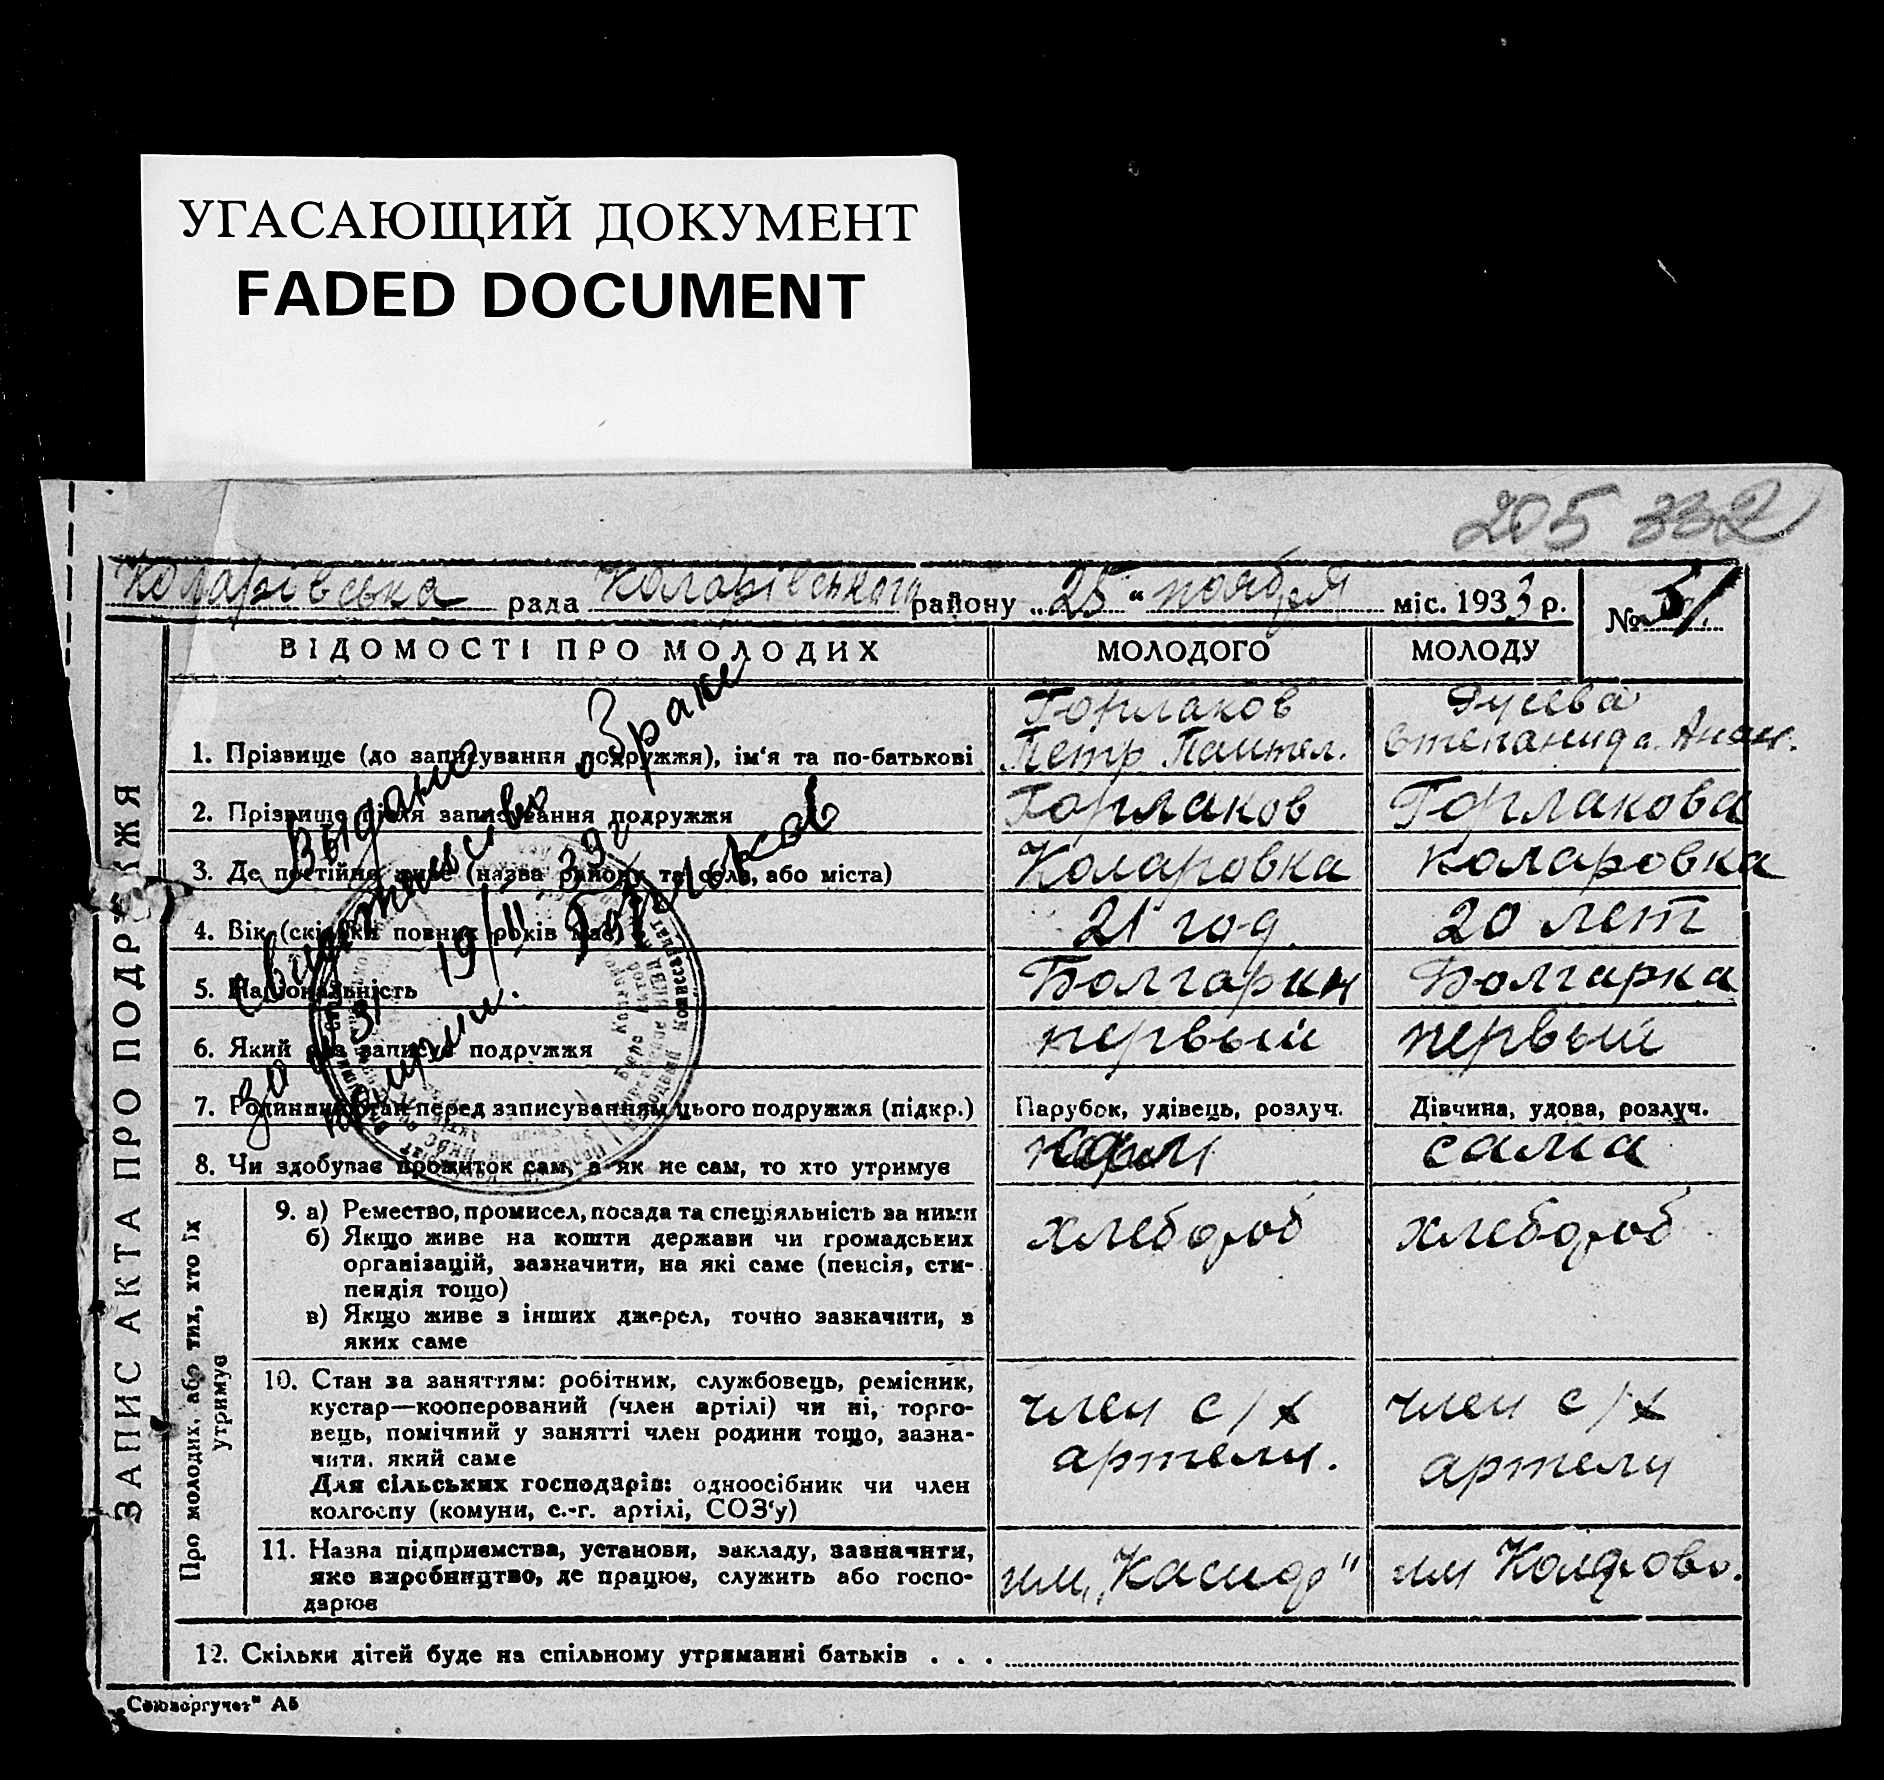 УГАСАЮЩИЙ ДОКУМЕНТ
FADED DOCUMENT
205 332
Коларівська рада Коларівського району „25“ ноября міс. 1933 р.
№ 31
ЗАПИС АКТА ПРО ПОДРУЖЖЯ
ВІДОМОСТІ ПРО МОЛОДИХ
МОЛОДОГО
МОЛОДУ
1. Прізвище (до записування подружжя), ім‘я та по-батькові
Горлаков
Петр Пантел.
Гусева
Степанида Анан.
2. Прізвище після записування подружжя
Горлаков
Горлакова
3. Де постійно живе (назва району та села, або міста)
Коларовка
Коларовка
4. Вік (скільки повних років має)
21 год
20 лет
5. Національність
Болгарин
Болгарка
6. Який раз записує подружжя
первый
первый
7. Родинний стан перед записуванням цього подружжя (підкр.)
Парубок, удівець, розлуч.
Дівчина, удова, розлуч.
8. Чи здобуває прожиток сам, а як не сам, то хто утримує
сам
сама
Про молодих, або тих, хто їх
утримує
9. а) Ремество, промисел, посада та спеціяльність за ними
б) Якщо живе на кошти держави чи громадських
організацій, зазначити, на які саме (пенсія, сти-
пендія тощо)
в) Якщо живе з інших джерел, точно зазначити, з
яких саме
хлебороб
хлебороб
10. Стан за заняттям: робітник, службовець, ремісник,
кустар—кооперований (член артілі) чи ні, торго-
вець, помічний у занятті член родини тощо, зазна-
чити, який саме
Для сільських господарів: одноосібник чи член
колгоспу (комуни, с.-г. артілі, СОЗ‘у)
член с/х
артели.
член с/х
артели
11. Назва підприємства, установи, закладу, зазначити,
яке виробництво, де працює, служить або госпо-
дарює
им
им
12. Скільки дітей буде на спільному утриманні батьків . . .
„Союзоргучет" А5
Выдано
свидетельство о браке
за № 31 19/II 39 г
Горлаков